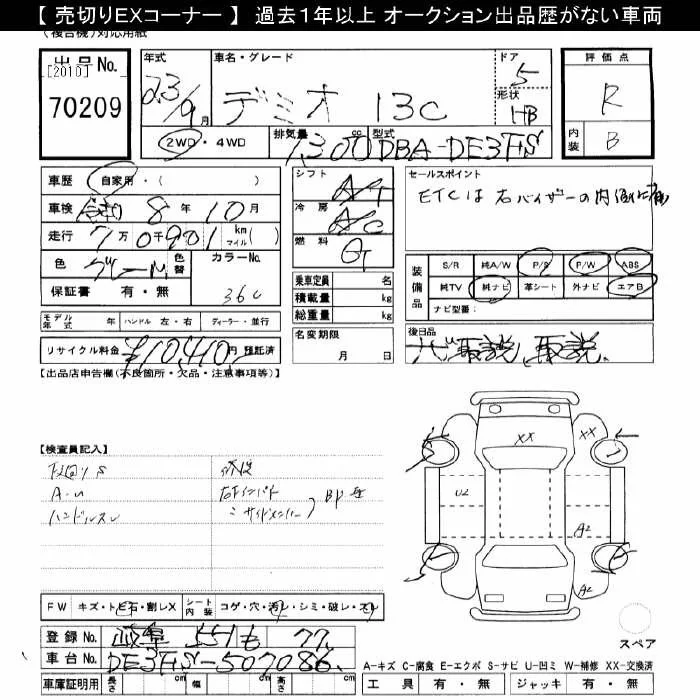 【 売切りEXコーナー 】 過去１年以上 オークション出品歴がない車両
(複合機)対応用紙
出品No.
[2010]
70209
年式
23/9月
車名・グレード
デミオ 13C
ドア
5
形状
HB
評価点
R
内装
B
2WD・4WD
排気量
1300cc
型式
DBA-DE3FS
車歴 自家用・( )
車検 令和 8年 10月
走行 7万0千901 km マイル( )
色 グレーM
色替
カラーNo.
36C
保証書 有・無
モデル年式 年 ハンドル 左・右 ディーラー・並行
リサイクル料金 ¥10,410円 預託済
シフト
AT
冷房
AC
燃料
G
乗車定員 名
積載量 kg
総重量 kg
名変期限
月 日
セールスポイント
ETCは右バイザーの内側に
装備品
S/R 純A/W P/S P/W ABS
純TV 純ナビ 革シート 外ナビ エアB
ナビ型番:
後日品
取説 取説
【出品店申告欄(不良箇所・欠品・注意事項等)】
【検査員記入】
下回りS
A-U
ハンドルスレ
修復
右Fインパネ
サイドメンバー
XX
XX
U2
A2
A2
スペア
FW キズ・トビ石・割レX
シート内装 コゲ・穴・汚レ・シミ・破レ・スレ
登録No. 岐阜 551 も 77
車台No. DE3FS-507086
車庫証明用 長さ cm 幅 cm 高さ cm
A-キズ C-腐食 E-エクボ S-サビ U-凹ミ W-補修 XX-交換済
工具 有・無 ジャッキ 有・無